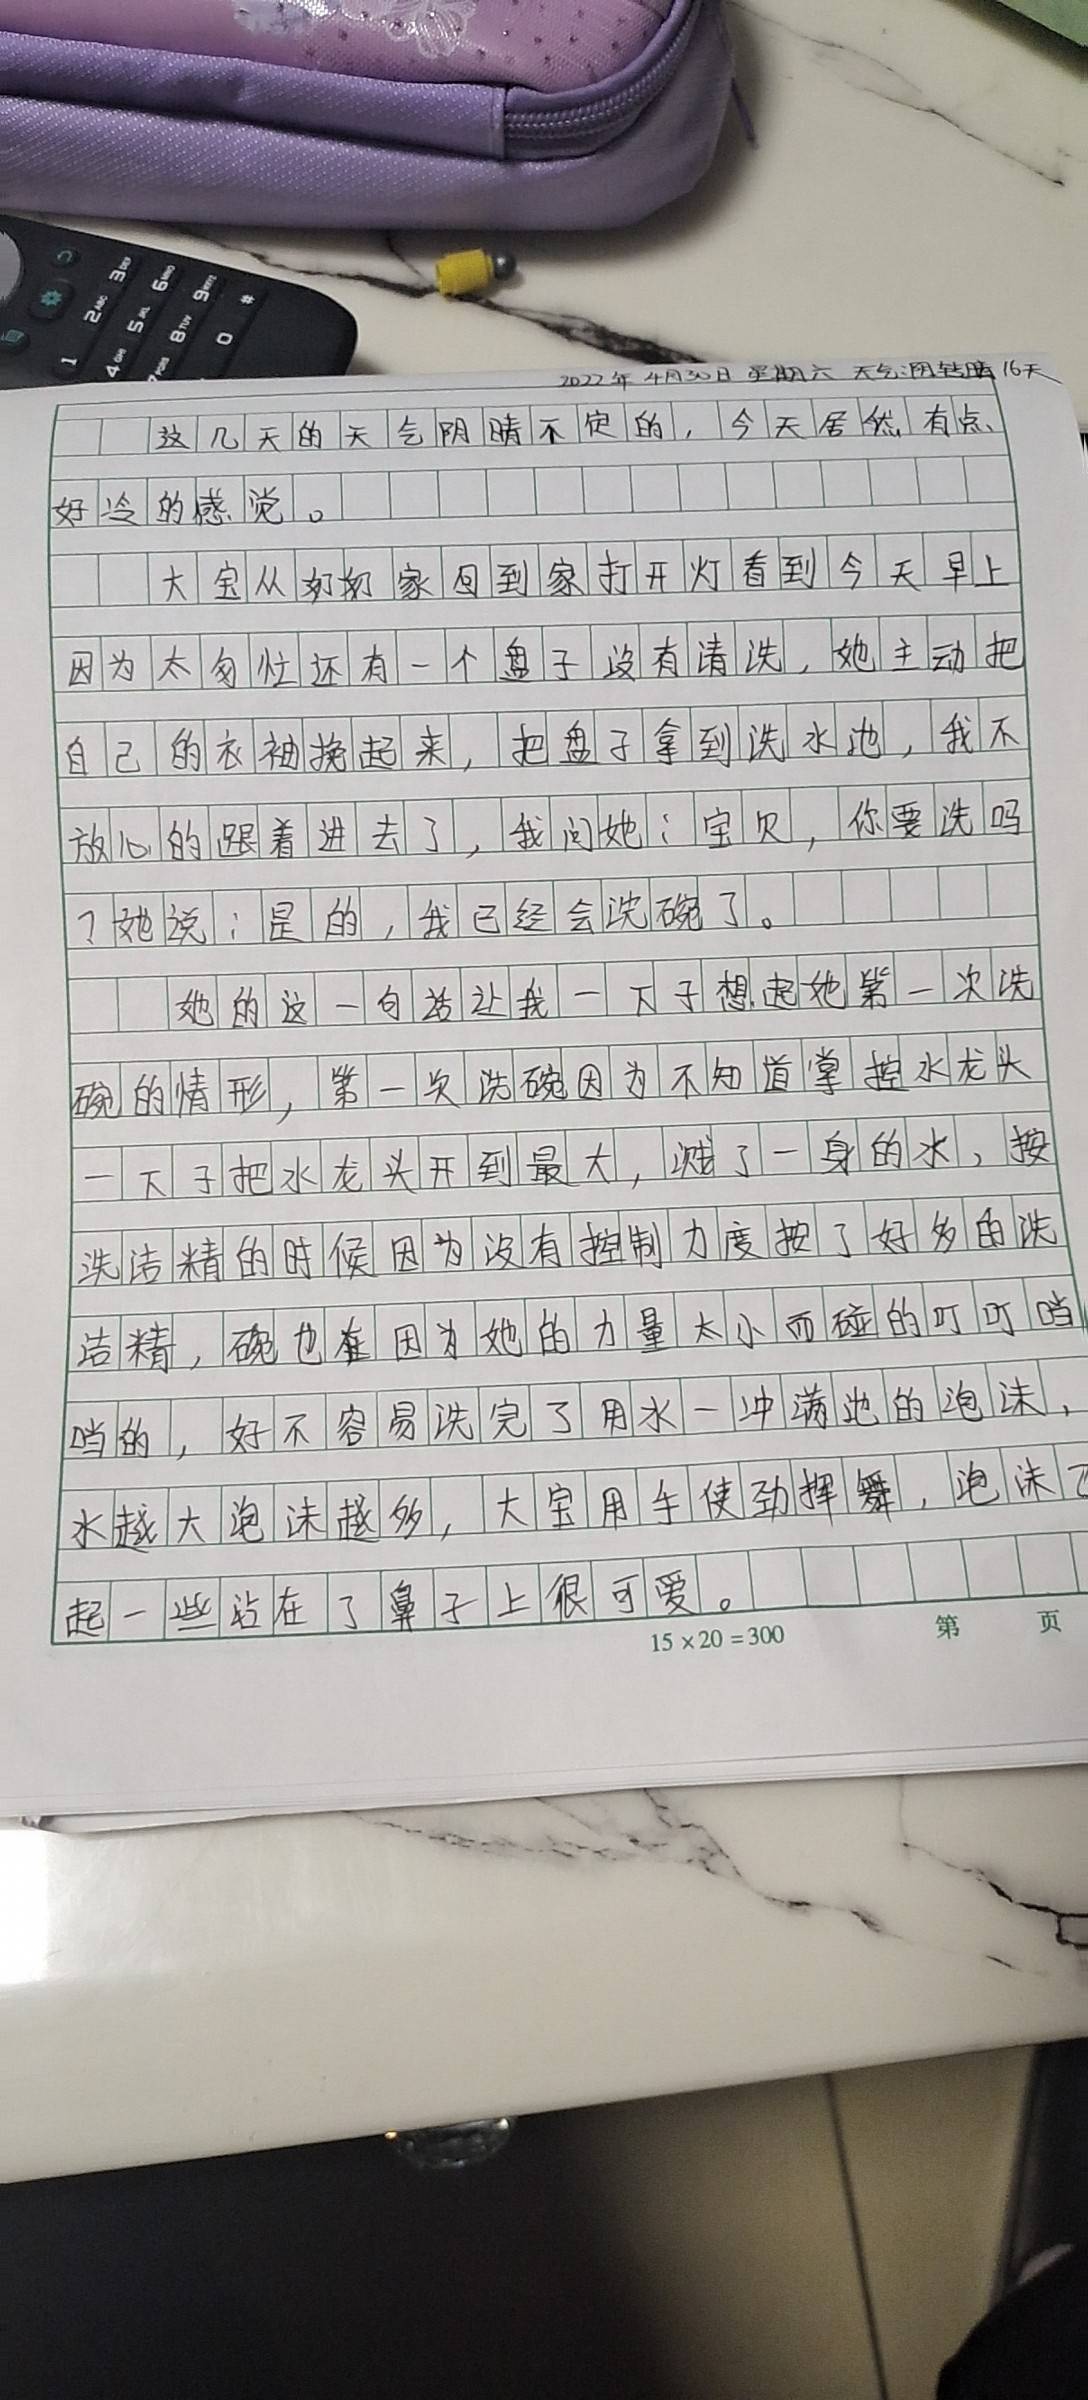 3DEF
6MNO
9WXYZ
#
2ABC
5JKL
8TUV
0
1
4GHI
7PQRS
2022年4月30日 星期六 天气:阴转晴 16天
这几天的天气阴晴不定的，今天居然有点
好冷的感觉。
大宝从奶奶家回到家打开灯看到今天早上
因为太匆忙还有一个盘子没有清洗，她主动把
自己的衣袖挽起来，把盘子拿到洗水池，我不
放心的跟着进去了，我问她：宝贝，你要洗吗
？她说：是的，我已经会洗碗了。
她的这一句话让我一下子想起她第一次洗
碗的情形，第一次洗碗因为不知道掌控水龙头
一下子把水龙头开到最大，溅了一身的水，按
洗洁精的时候因为没有控制力度按了好多的洗
洁精，碗也在因为她的力量太小而碰的叮叮当
当的，好不容易洗完了用水一冲满池的泡沫，
水越大泡沫越多，大宝用手使劲挥舞，泡沫飞
起一些沾在了鼻子上很可爱。
15×20=300
第 页